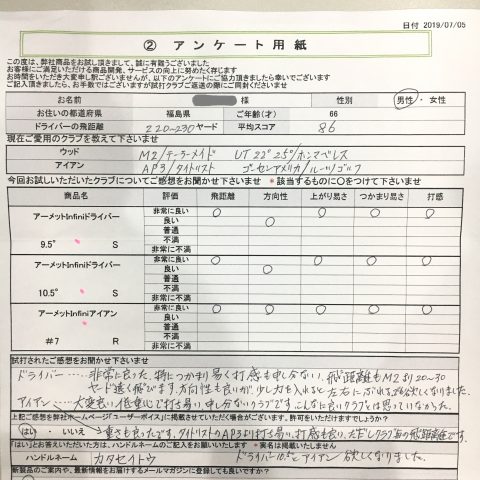 日付 2019/07/05
② アンケート用紙
この度は、弊社商品をお試し頂きまして、誠に有難うございました
お客様にご満足いただける商品開発、サービスの向上に努めたく存じます
お時間をいただき大変申し訳ございませんが、以下のアンケートにご協力頂きましたら幸いでございます
ご記入頂きましたら、お手数ではございますが試打クラブご返送の際にご同封くださいませ
お名前 様 性別 男性・女性
お住いの都道府県 福島県 ご年齢(才) 66
ドライバーの飛距離 220~230 ヤード 平均スコア 86
現在ご愛用のクラブを教えて下さいませ
ウッド M2/テーラーメイド UT 22° 25°/ホンマベレス
アイアン AP3/タイトリスト
今回お試しいただいたクラブについてご感想をお聞かせ下さいませ *該当するものに○をつけて下さいませ
商品名 評価 飛距離 方向性 上がり易さ つかまり易さ 打感
アーメットInfiniドライバー 9.5° S 非常に良い ○ ○ ○ ○
良い ○
普通
不満
非常に不満
アーメットInfiniドライバー 10.5° S 非常に良い ○ ○ ○ ○
良い ○
普通
不満
非常に不満
アーメットInfiniアイアン #7 R 非常に良い ○ ○ ○ ○ ○
良い
普通
不満
非常に不満
試打されたご感想をお聞かせ下さいませ
ドライバー・・・非常に良かった。特につかまり易く打感も申し分ない。飛距離もM2より20~30
ヤード遠く飛びます。方向性も良いが、少し力を入れると左右にぶれる。でも欲しくなりました。
アイアン・・・大変良い。低重心で打ち易い。申し分ないクラブです。こんなに良いクラブとは思っていなかった。
上記ご感想を弊社ホームページ「ユーザーボイス」に掲載させていただく場合がございます。許可をいただけますでしょうか?
はい ・ いいえ 重さも良ったです。タイトリストのAP3より打ち易い、打感も良い、
「はい」とお答えいただいた方は、ハンドルネームのご記入をお願いします *実名は掲載いたしません
ハンドルネーム カタセイトウ ドライバー10.5とアイアン欲しくなりました。
新製品のご案内や、最新情報をお届けするメールマガジンに登録しても良いですか?